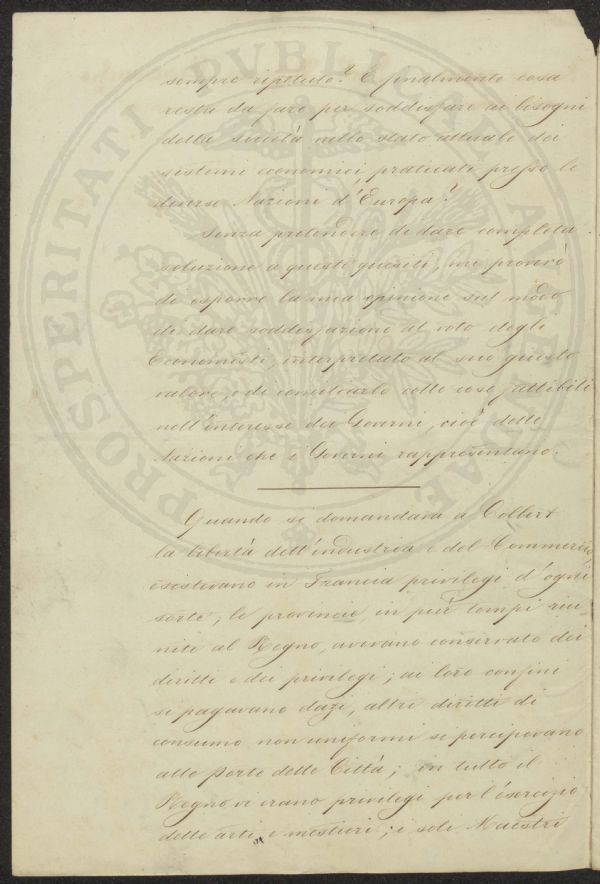 sempre ripetuto? E finalmente cosa
resta da fare per soddisfare ai bisogni
della società nello stato attuale dei
sistemi economici, praticati presso le
diverse Nazioni d'Europa?
Senza pretendere di dare completa
soluzione a questi quesiti, mi proverò
di esporre la mia opinione sul modo
di dare soddisfazione al voto degli
Economisti, interpretato al suo giusto
valore, e di conciliarlo colle cose fattibili
nell'interesse dei Governi, cioè delle
Nazioni che i Governi rappresentano.
Quando si domandava a Colbert
la libertà dell'industria e del Commercio,
esistevano in Francia privilegi d'ogni
sorte; le provincie, in più tempi riu
nite al Regno, avevano conservato dei
diritti e dei privilegi; ai loro confini
si pagavano dazi, altri diritti di
consumo non uniformi si percipevano
alle Porte delle Città; in tutto il
Regno vi erano privilegi per l'esercizio
delle arti e mestieri; i soli Maestri
PROSPERITATI PVBLICAE AVGENDAE